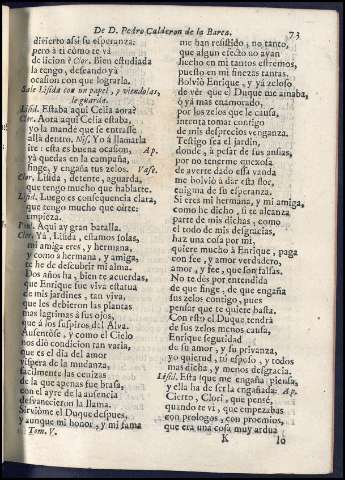 De D. Pedro Calderon de la Barca.
73
divierto assi su esperanza:
pero à ti còmo te và
de licion? Clor. Bien estudiada
la tengo, deseando yà
ocasion con que lograrla.
Sale Lisida con un papel, y viendolas,
le guarda.
Lisid. Estaba aqui Celia aora?
Clor. Aora aqui Celia estaba,
yo la mandè que se entrasse
allà dentro. Nis. Yo à llamarla
irè: esta es buena ocasion, Ap.
yà quedas en la campaña,
finge, y engaña tus zelos. Vase.
Clor. Lisida, detente, aguarda,
que tengo mucho que hablarte.
Lisid. Luego es consequencia clara,
que tengo mucho que oirte:
empieza.
Aqui ay gran batalla.
Clor. Yà, Lisida, estamos solas,
mi amiga eres, y hermana,
y como à hermana, y amiga,
te he de descubrir mi alma.
Dos años ha, bien te acuerdas,
que Enrique fue viva estatua
de mis jardines, tan viva,
que les debieron las plantas
mas lagrimas à sus ojos,
que à los suspiros del Alva.
Ausentòse, y como el Cielo
nos diò condicion tan varia,
que es el dia del amor
vispera de la mudanza,
facilmente las cenizas
de la que apenas fue brasa,
con el ayre de la ausencia
desvanecieron la llama.
Sirviòme el Duque despues,
y aunque mi honor, y mi fama
Tom. V.
me han resistido, no tanto,
que algun efecto no ayan
hecho en mi tantos estremos,
puesto en mi finezas tantas.
Bolviò Enrique, y yà zeloso
de vèr que el Duque me amaba,
ò yà mas enamorado,
por los zelos que le causa,
intenta tomar contigo
de mis desprecios venganza.
Testigo sea el jardin,
donde, à pesar de sus ansias,
por no tenerme quexosa
de averte dado essa vanda
me bolviò à dàr esta flor,
enigma de su esperanza.
Si eres mi hermana, y mi amiga,
como he dicho, si te alcanza
parte de mis dichas, como
el todo de mis desgracias,
haz una cosa por mi;
quiere mucho à Enrique, paga
con fee, y amor verdadero,
amor, y fee, que son falsas.
No te dès por entendida
de que finge, de que engaña
sus zelos contigo, pues
pensar que te quiere basta.
Con esto el Duque tendrà
de sus zelos menos causa,
Enrique seguridad
de su amor, y su privanza,
yo quietud, tù esposo, y todos
mas dicha, y menos desgracia.
Lisid. Esta que me engaña piensa,
y ella ha de ser la engañada: Ap.
Cierto, Clori, que pensè,
quando te vi, que empezabas
con prologos, con proemios,
que era una cosa muy ardua
K
lo